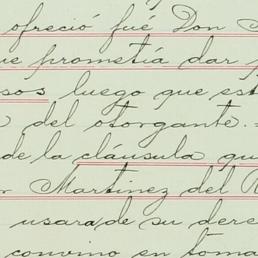 ofreció fué Don
ue prometía dar
sos luego que est
del otorgante.=
de la cláusula qu
Martinez del R
usara de su dere
convino en toma